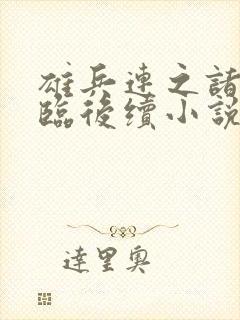 雄兵連之諸
臨後續小説
達里奧